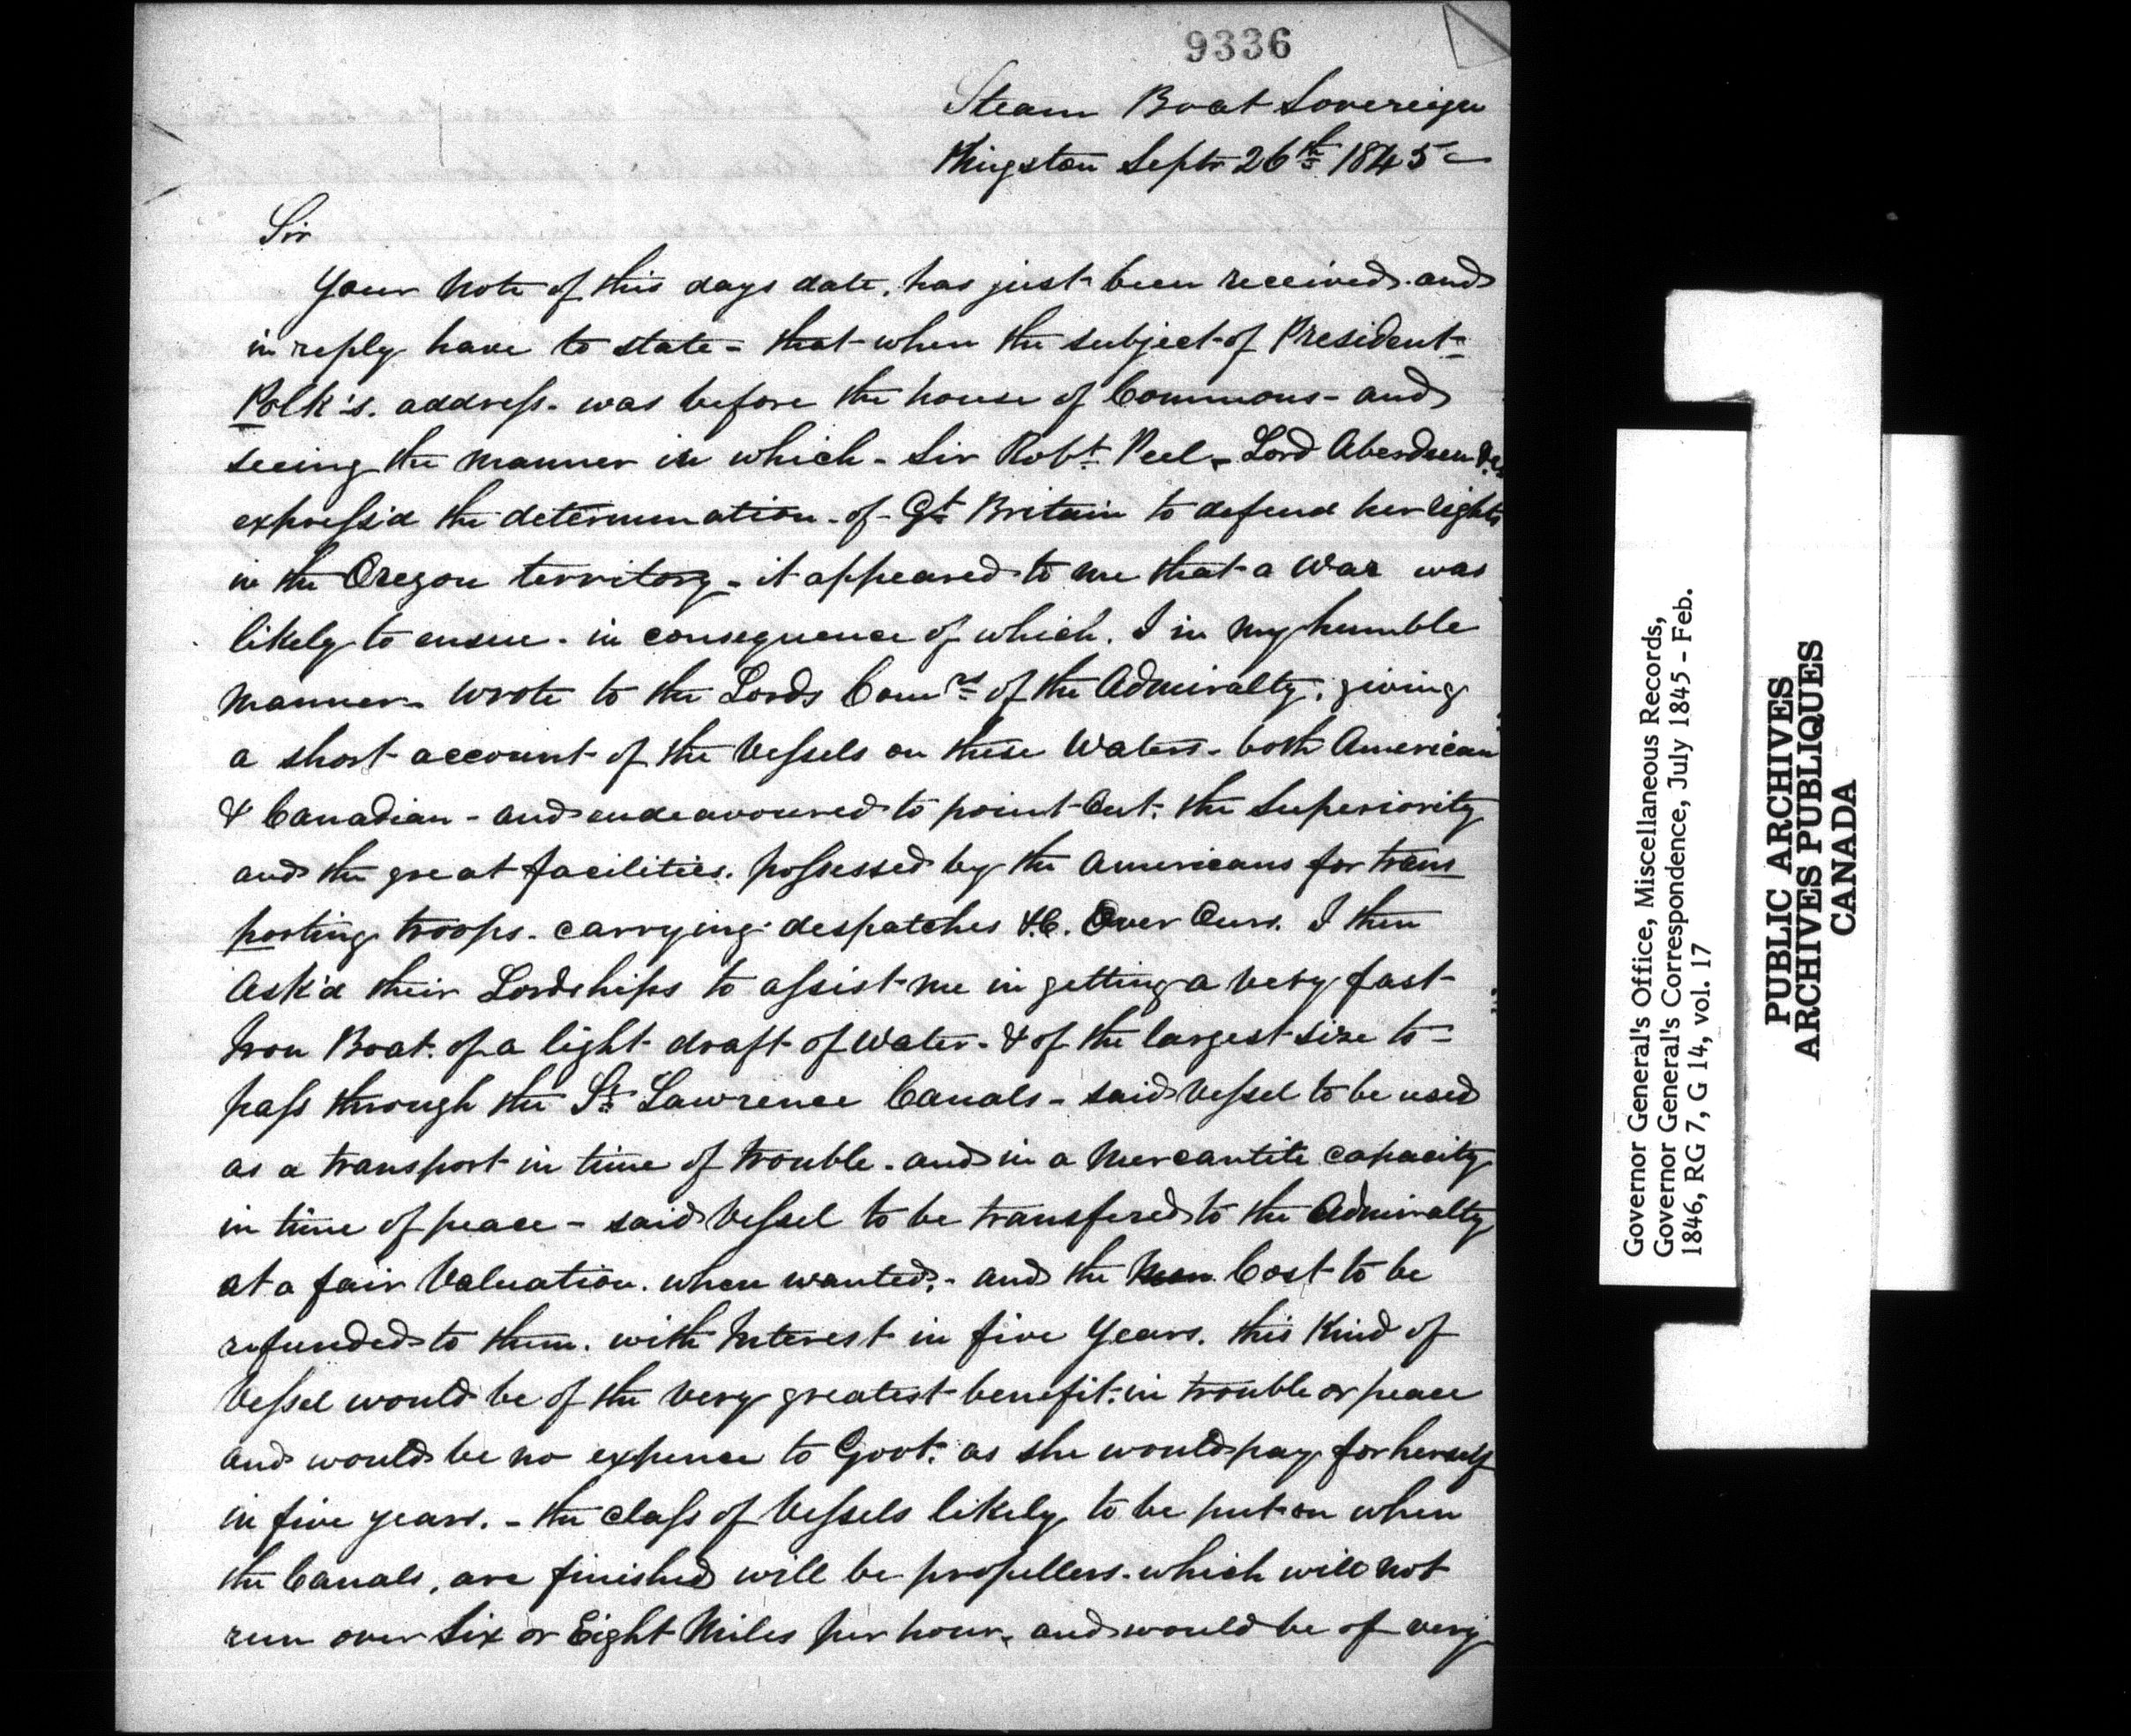 9336
Steam Boat Sovereign
Kingston Septr 26th 1845
Sir
Your Note of this days date, has just been received and
in reply have to state - that when the subject of President
Polk's. address. was before the house of Commons - and
seeing the manner in which - Sir Robt. Peel - Lord Aberdeen &c
express'd the determination - of - Gt Britain to defend her rights
in the Oregon territory - it appeared to me that a War was
likely to ensue. in consequence of which. I in my humble
manner - wrote to the Lords Comrs of the Admiralty; giving
a short account of the Vessels on these Waters - both American
& Canadian - and endeavoured to point Out. the Superiority
and the great facilities. possessed by the Americans for trans
porting troops. carrying despatches &C. Over Ours. I then
Ask'd their Lordships to assist me in getting a very fast
Iron Boat. of a light draft of Water. & of the largest size to -
pass through the St Lawrence Canals - said Vessel to be used
as a transport in time of trouble. and in a Mercantile capacity
in time of peace - said Vessel to be transfered to the Admiralty
at a fair Valuation. when wanted; - and the Cost to be
refunded to them. with Interest in five Years. this Kind of
Vessel would be of the very greatest benefit. in trouble or peace
and would be no expence to Govt. as she would pay for herself
in five years. - the class of Vessels likely to be put on when
the Canals, are finished will be propellers. which will not
run over Six or Eight Miles per hour. and would be of very
Governor General's Office, Miscellaneous Records,
Governor General's Correspondence, July 1845 - Feb.
1846, RG 7, G 14, vol. 17
PUBLIC ARCHIVES
ARCHIVES PUBLIQUES
CANADA